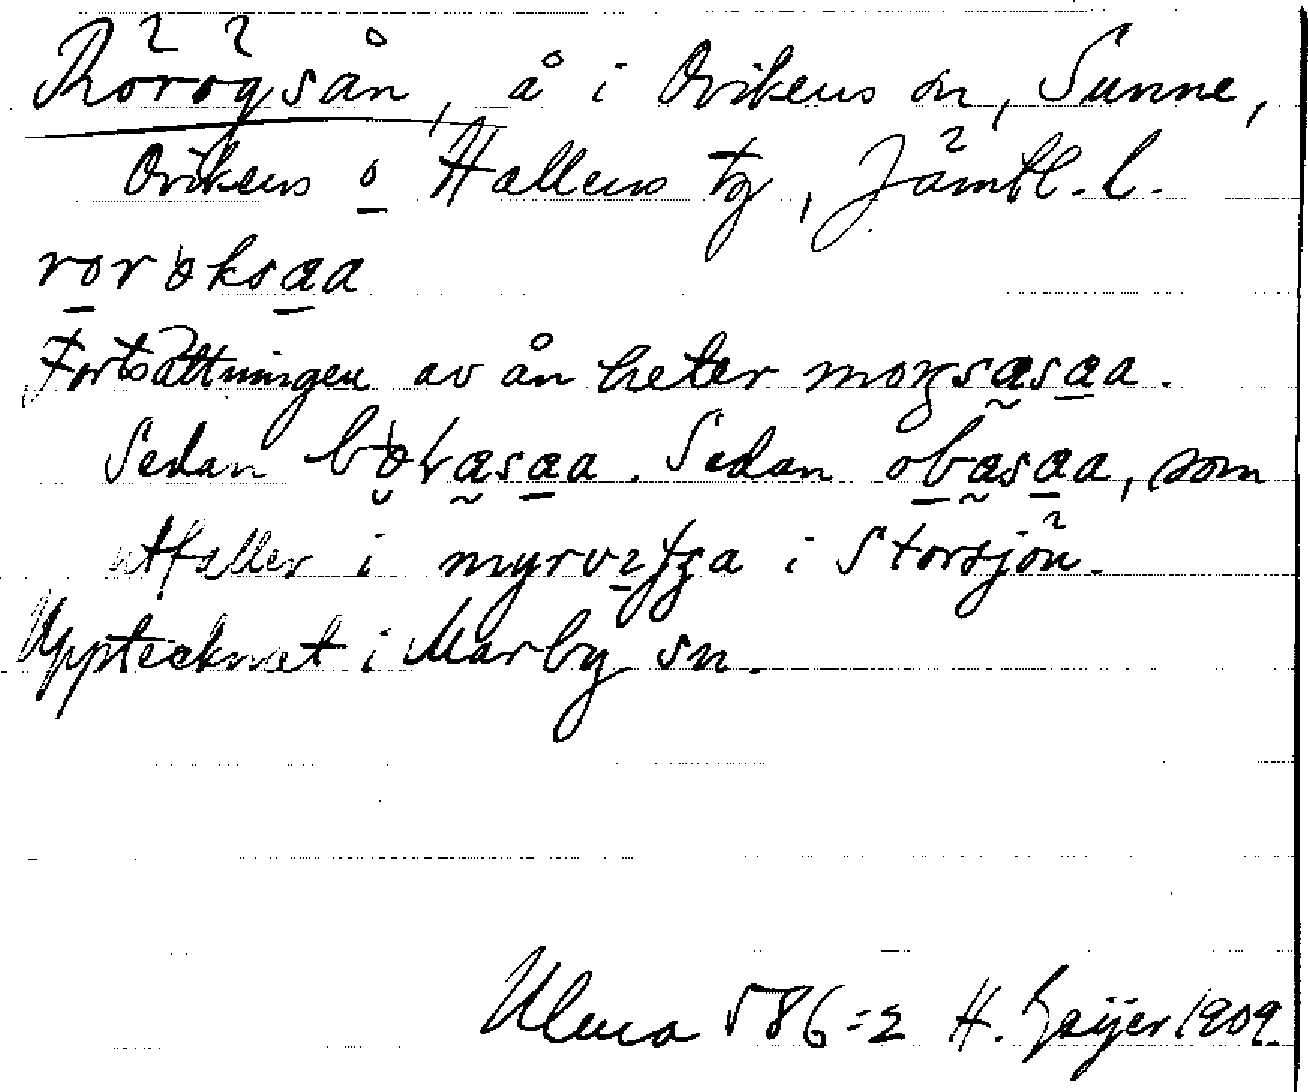 Rörögsån, å i Ovikens sn, Sunne,
Ovikens o Hallens tg, Jämtl. l.
rorøksaa
Fortsättningen av ån heter
Sedan Sedan obasaa, som
utfaller i i Storsjön.
Upptecknat i Marby sn.
Ulma 586:2 H. Geijer 1909.